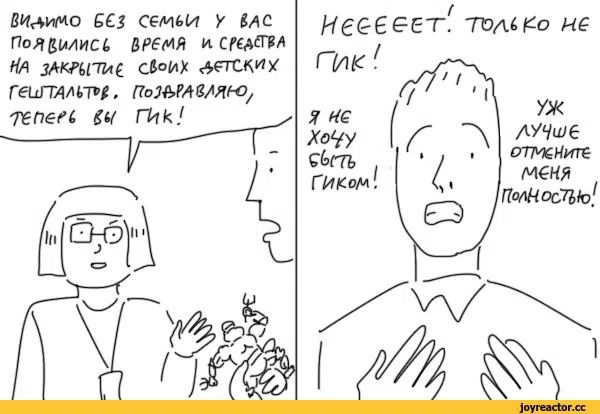 ВИДИМО БЕЗ СЕМЬИ У ВАС
ПОЯВИЛИСЬ ВРЕМЯ И СРЕДСТВА
НА ЗАКРЫТИЕ СВОИХ ДЕТСКИХ
ГЕШТАЛЬТОВ. ПОЗДРАВЛЯЮ,
ТЕПЕРЬ ВЫ ГИК!
НЕЕЕЕЕТ! ТОЛЬКО НЕ
ГИК!
Я НЕ
ХОЧУ
БЫТЬ
ГИКОМ!
УЖ
ЛУЧШЕ
ОТМЕНИТЕ
МЕНЯ
ПОЛНОСТЬЮ!
joyreactor.cc